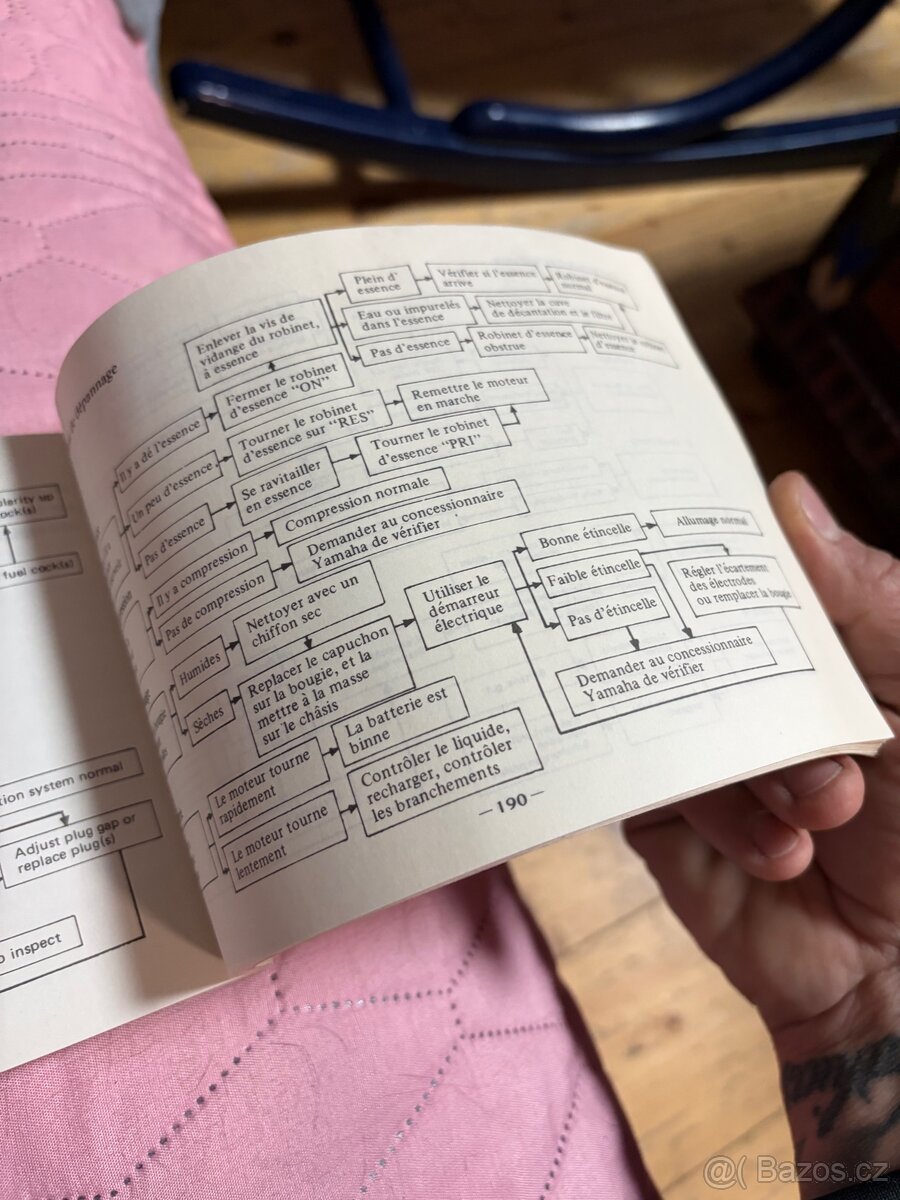 dépannage
Plein d'
essence
Vérifier si l'essence
arrive
Robinet d'essence
normal
Enlever la vis de
vidange du robinet,
à essence
Eau ou impurelés
dans l'essence
Nettoyer la cuve
de décantation et le filtre
Pas d'essence
Robinet d'essence
obstrue
Nettoyer le
d'essence
Il y a dé l'essence
Fermer le robinet
d'essence "ON"
Un peu d'essence
Tourner le robinet
d'essence sur "RES"
Remettre le moteur
en marche
Pas d'essence
Se ravitailler
en essence
Tourner le robinet
d'essence "PRI"
Il y a compression
Compression normale
Pas de compression
Demander au concessionnaire
Yamaha de vérifier
Humides
Nettoyer avec un
chiffon sec
Sèches
Replacer le capuchon
sur la bougie, et la
mettre à la masse
sur le châsis
Utiliser le
démarreur
électrique
Bonne étincelle
Allumage normal
Faible étincelle
Régler l'écartement
des électrodes
ou remplacer la bougie
Pas d'étincelle
Demander au concessionnaire
Yamaha de vérifier
Le moteur tourne
rapidement
La batterie est
binne
Le moteur tourne
lentement
Contrôler le liquide,
recharger, contrôler
les branchements
—190—
fuel cock(s)
system normal
Adjust plug gap or
replace plug(s)
inspect
@( Bazos.cz